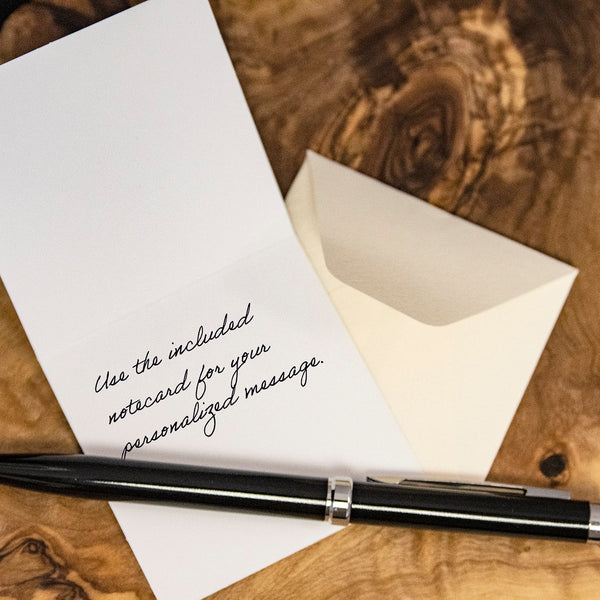 Use the included
notecard for your
personalized message.